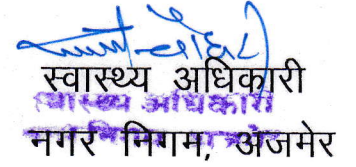 स्वास्थ्य अधिकारी
स्वास्थ्य अधिकारी
नगर निगम, अजमेर